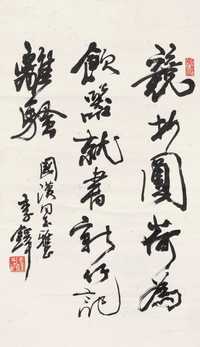 競折圓荷為
飲器就書新竹記
離騷
國漢同志雅
李鐸